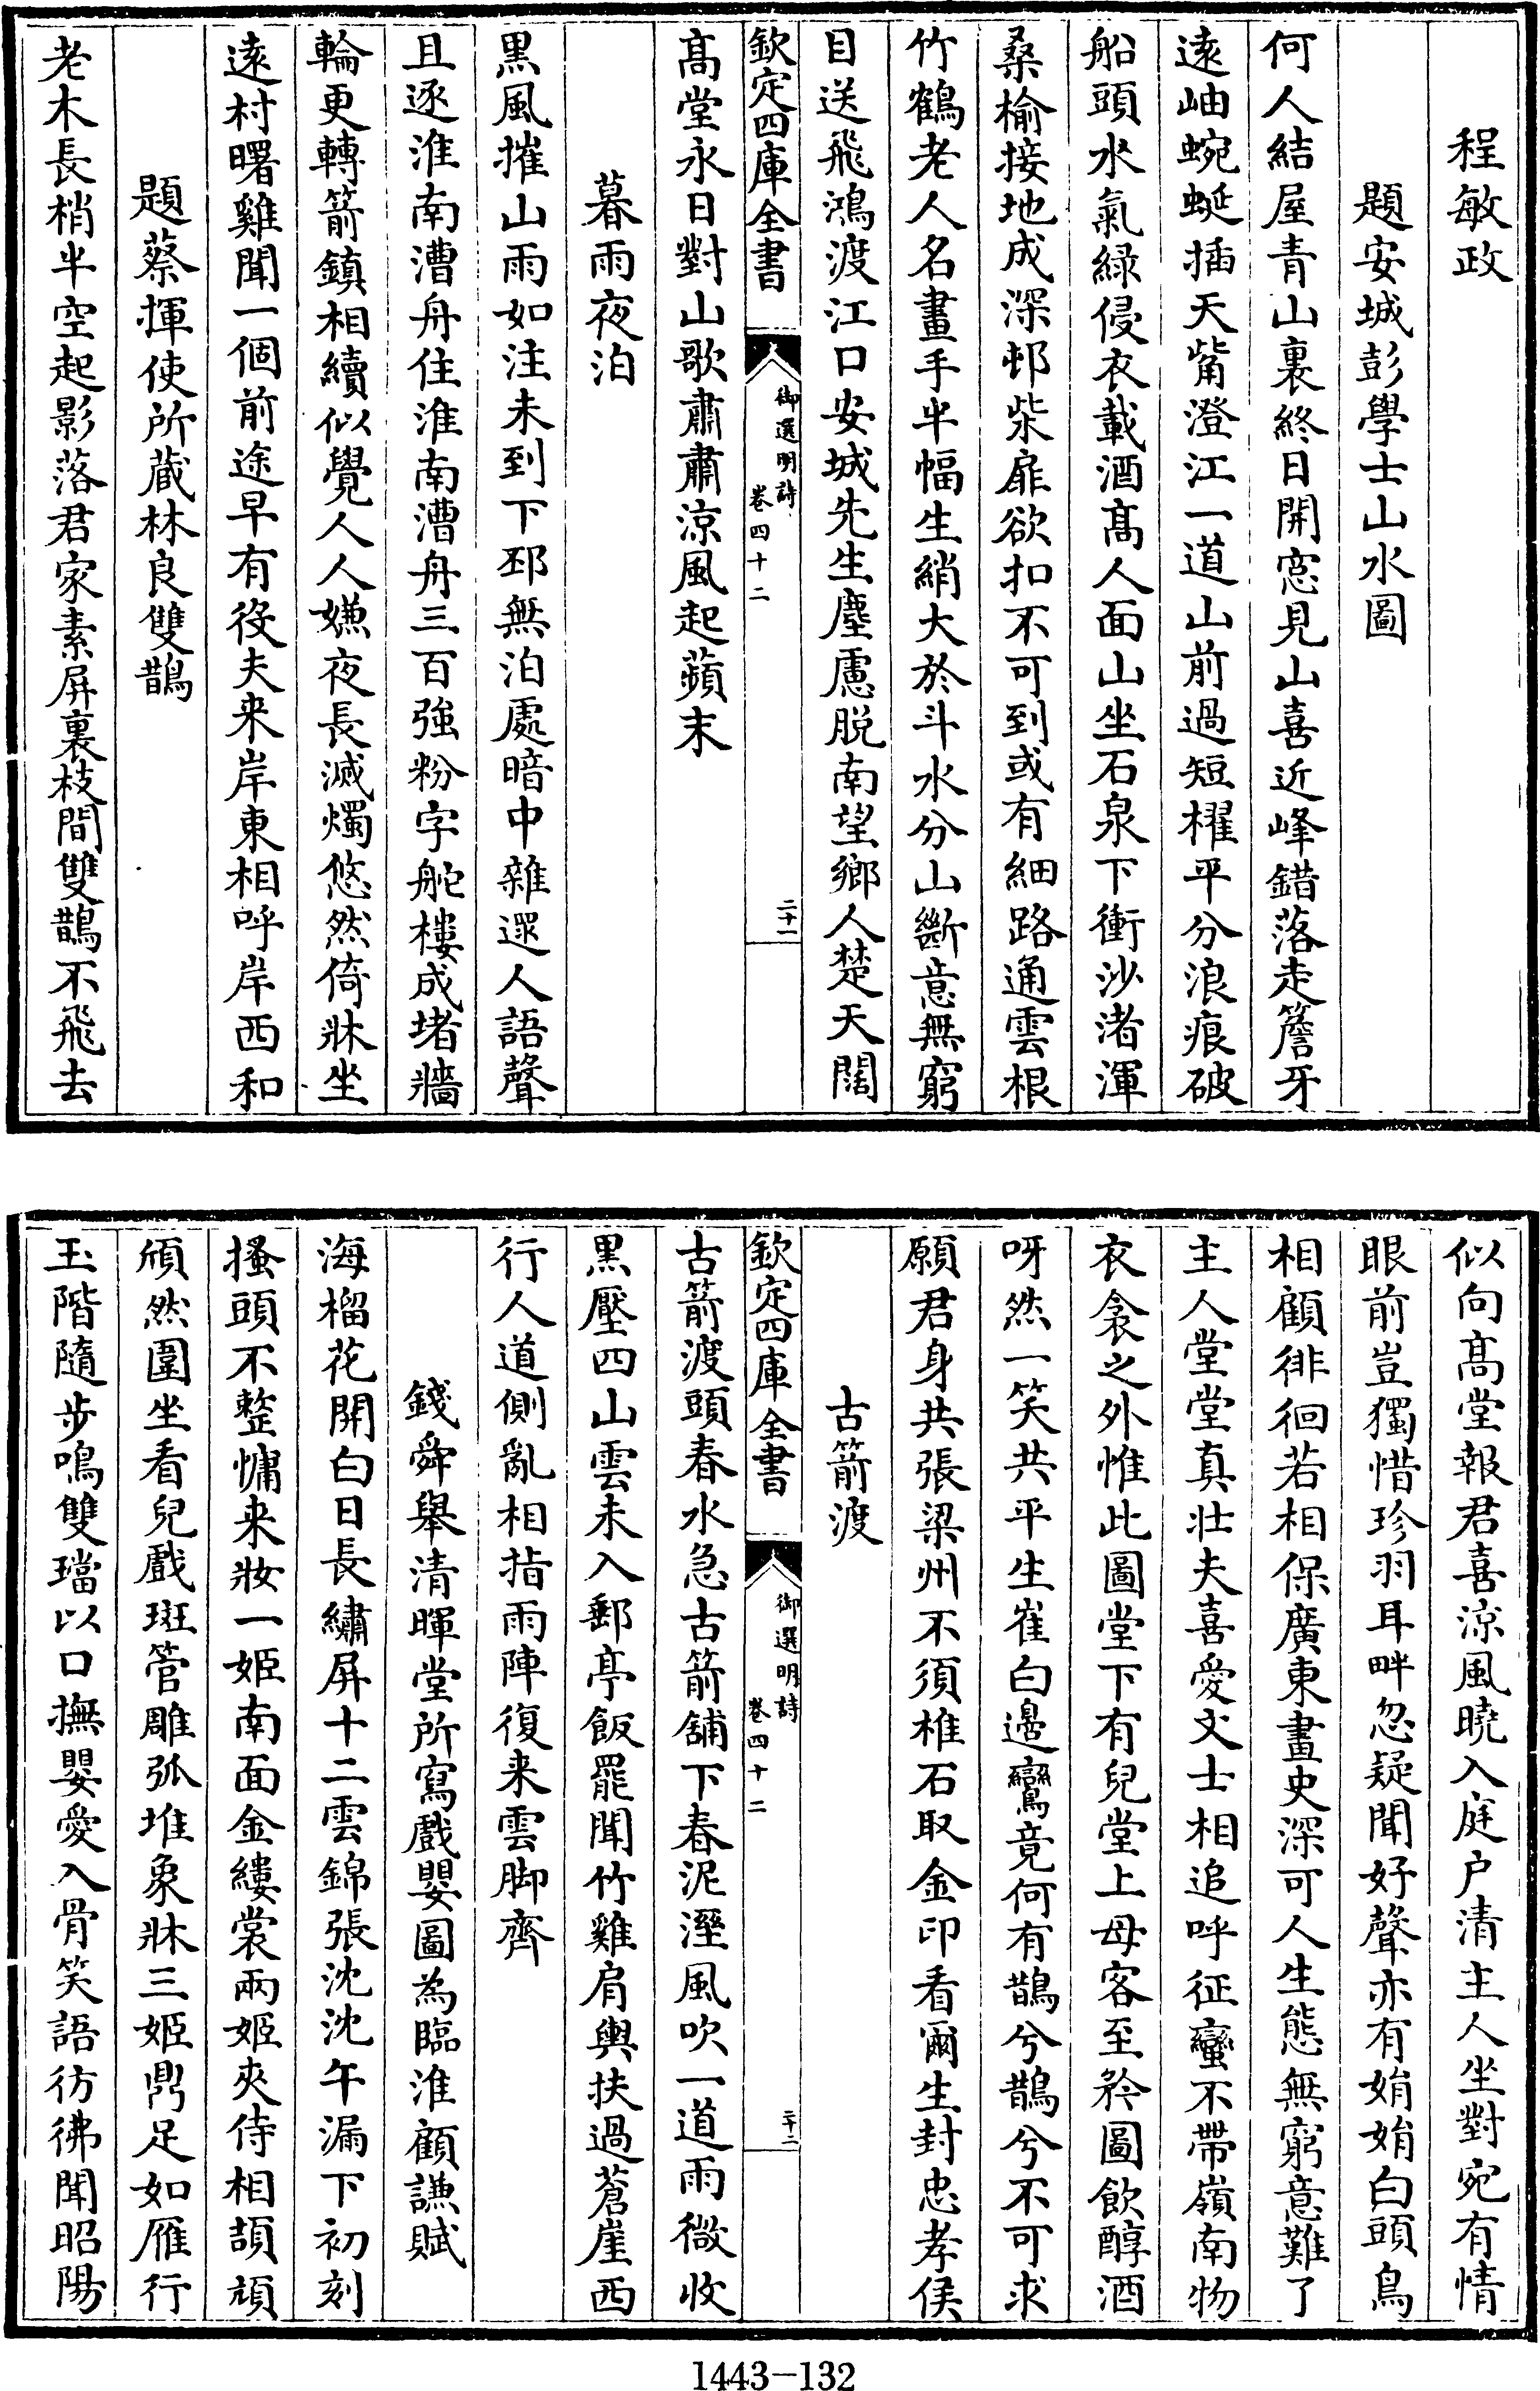 程敏政
題安城彭學士山水圖
何人結屋青山裏終日開窓見山喜近峰錯落走簷牙
遠岫蜿蜒插天觜澄江一道山前過短櫂平分浪痕破
船頭水氣緑侵衣載酒髙人面山坐石泉下衝沙渚渾
桑榆接地成深邨柴扉欲扣不可到或有細路通雲根
竹鶴老人名畫手半幅生綃大於斗水分山斷意無窮
目送飛鴻渡江口安城先生塵慮脱南望鄉人楚天闊
欽定四庫全書
御選明詩
卷四十二
二十一
髙堂永日對山歌肅肅涼風起蘋末
暮雨夜泊
黒風摧山雨如注未到下邳無泊處暗中雜遝人語聲
且逐淮南漕舟住淮南漕舟三百強粉字舵樓成堵牆
輪更轉箭鎮相續似覺人人嫌夜長滅燭悠然倚牀坐
遠村曙雞聞一個前途早有役夫来岸東相呼岸西和
題蔡揮使所蔵林良雙鵲
老木長梢半空起影落君家素屏裏枝間雙鵲不飛去
似向髙堂報君喜涼風曉入庭户清主人坐對宛有情
眼前豈獨惜珍羽耳畔忽疑聞好聲亦有娟娟白頭鳥
相顧徘徊若相保廣東畫史深可人生態無窮意難了
主人堂堂真壯夫喜愛文士相追呼征蠻不帶嶺南物
衣衾之外惟此圖堂下有兒堂上母客至矜圖飲醇酒
呀然一笑共平生崔白邊鸞竟何有鵲兮鵲兮不可求
願君身共張梁州不須椎石取金印看爾生封忠孝侯
古箭渡
欽定四庫全書
御選明詩
卷四十二
二十二
古箭渡頭春水急古箭舖下春泥溼風吹一道雨微收
黒壓四山雲未入郵亭飯罷聞竹雞肩輿扶過蒼崖西
行人道側亂相指雨陣復来雲脚齊
錢舜舉清暉堂所寫戲嬰圖為臨淮顧謙賦
海榴花開白日長繡屏十二雲錦張沈沈午漏下初刻
搔頭不整慵来妝一姬南面金縷裳兩姬夾侍相頡頏
頎然圍坐看兒戲斑管雕弧堆象牀三姬鼎足如雁行
玉階隨步鳴雙璫以口撫嬰愛入骨笑語彷彿聞昭陽
1443-132